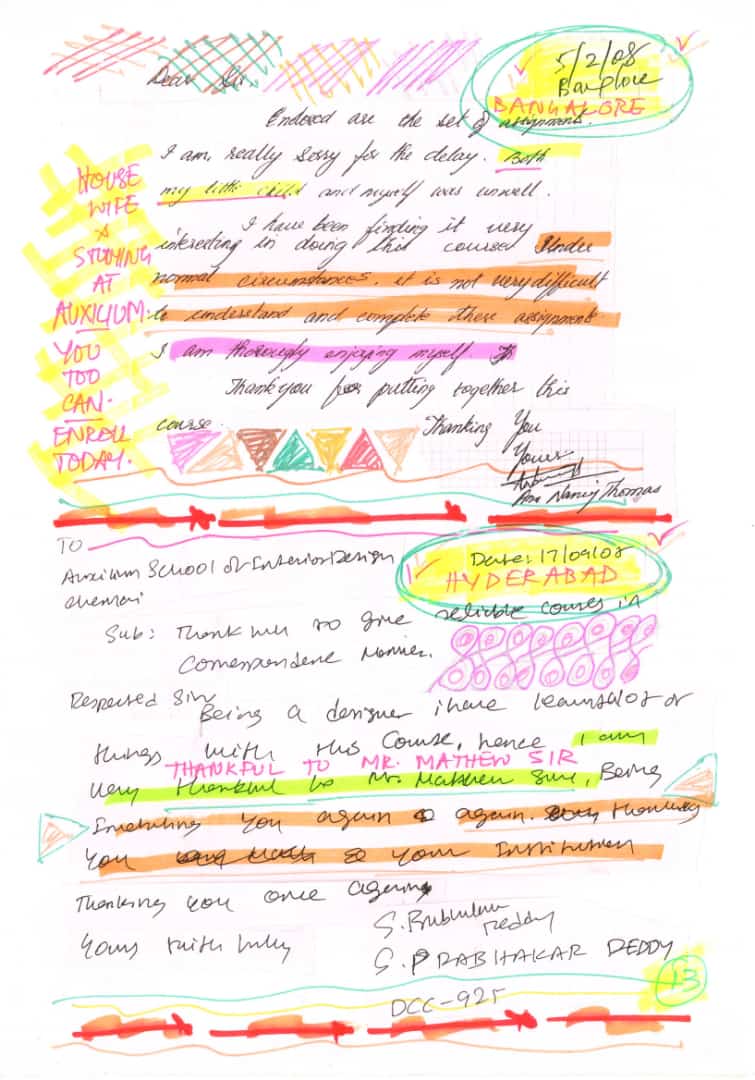 5/2/08
Banglore
BANGALORE
Dear Sir,
Enclosed are the set of assignments.
I am really sorry for the delay. Both
my little child and myself was unwell.
I have been finding it very
interesting in doing this course Under
normal circumstances, it is not very difficult
to understand and complete these assignments.
I am thoroughly enjoying myself.
Thank you for putting together this
course.
Thanking You
Yours
Nancy Thomas
HOUSE
WIFE
STUDYING
AT
AUXILIUM.
YOU
TOO
CAN.
ENROLL
TODAY.
TO
Auxilium School of Interior Design
chennai
Date: 17/09/08
HYDERABAD
Sub: Thank you to give reliable courses in
Correspondence Manner.
Respected Sir,
Being a designer i have learnt lot of
things with this Course, hence i am
THANKFUL TO MR. MATHEW SIR
very thankful to Mr. Mathew Sir, Being
You again & again. thanking
You & your Institution
Thanking you once again
Yours faithfully
S. Prabhakar
reddy
S. PRABHAKAR REDDY
DCC-925
13